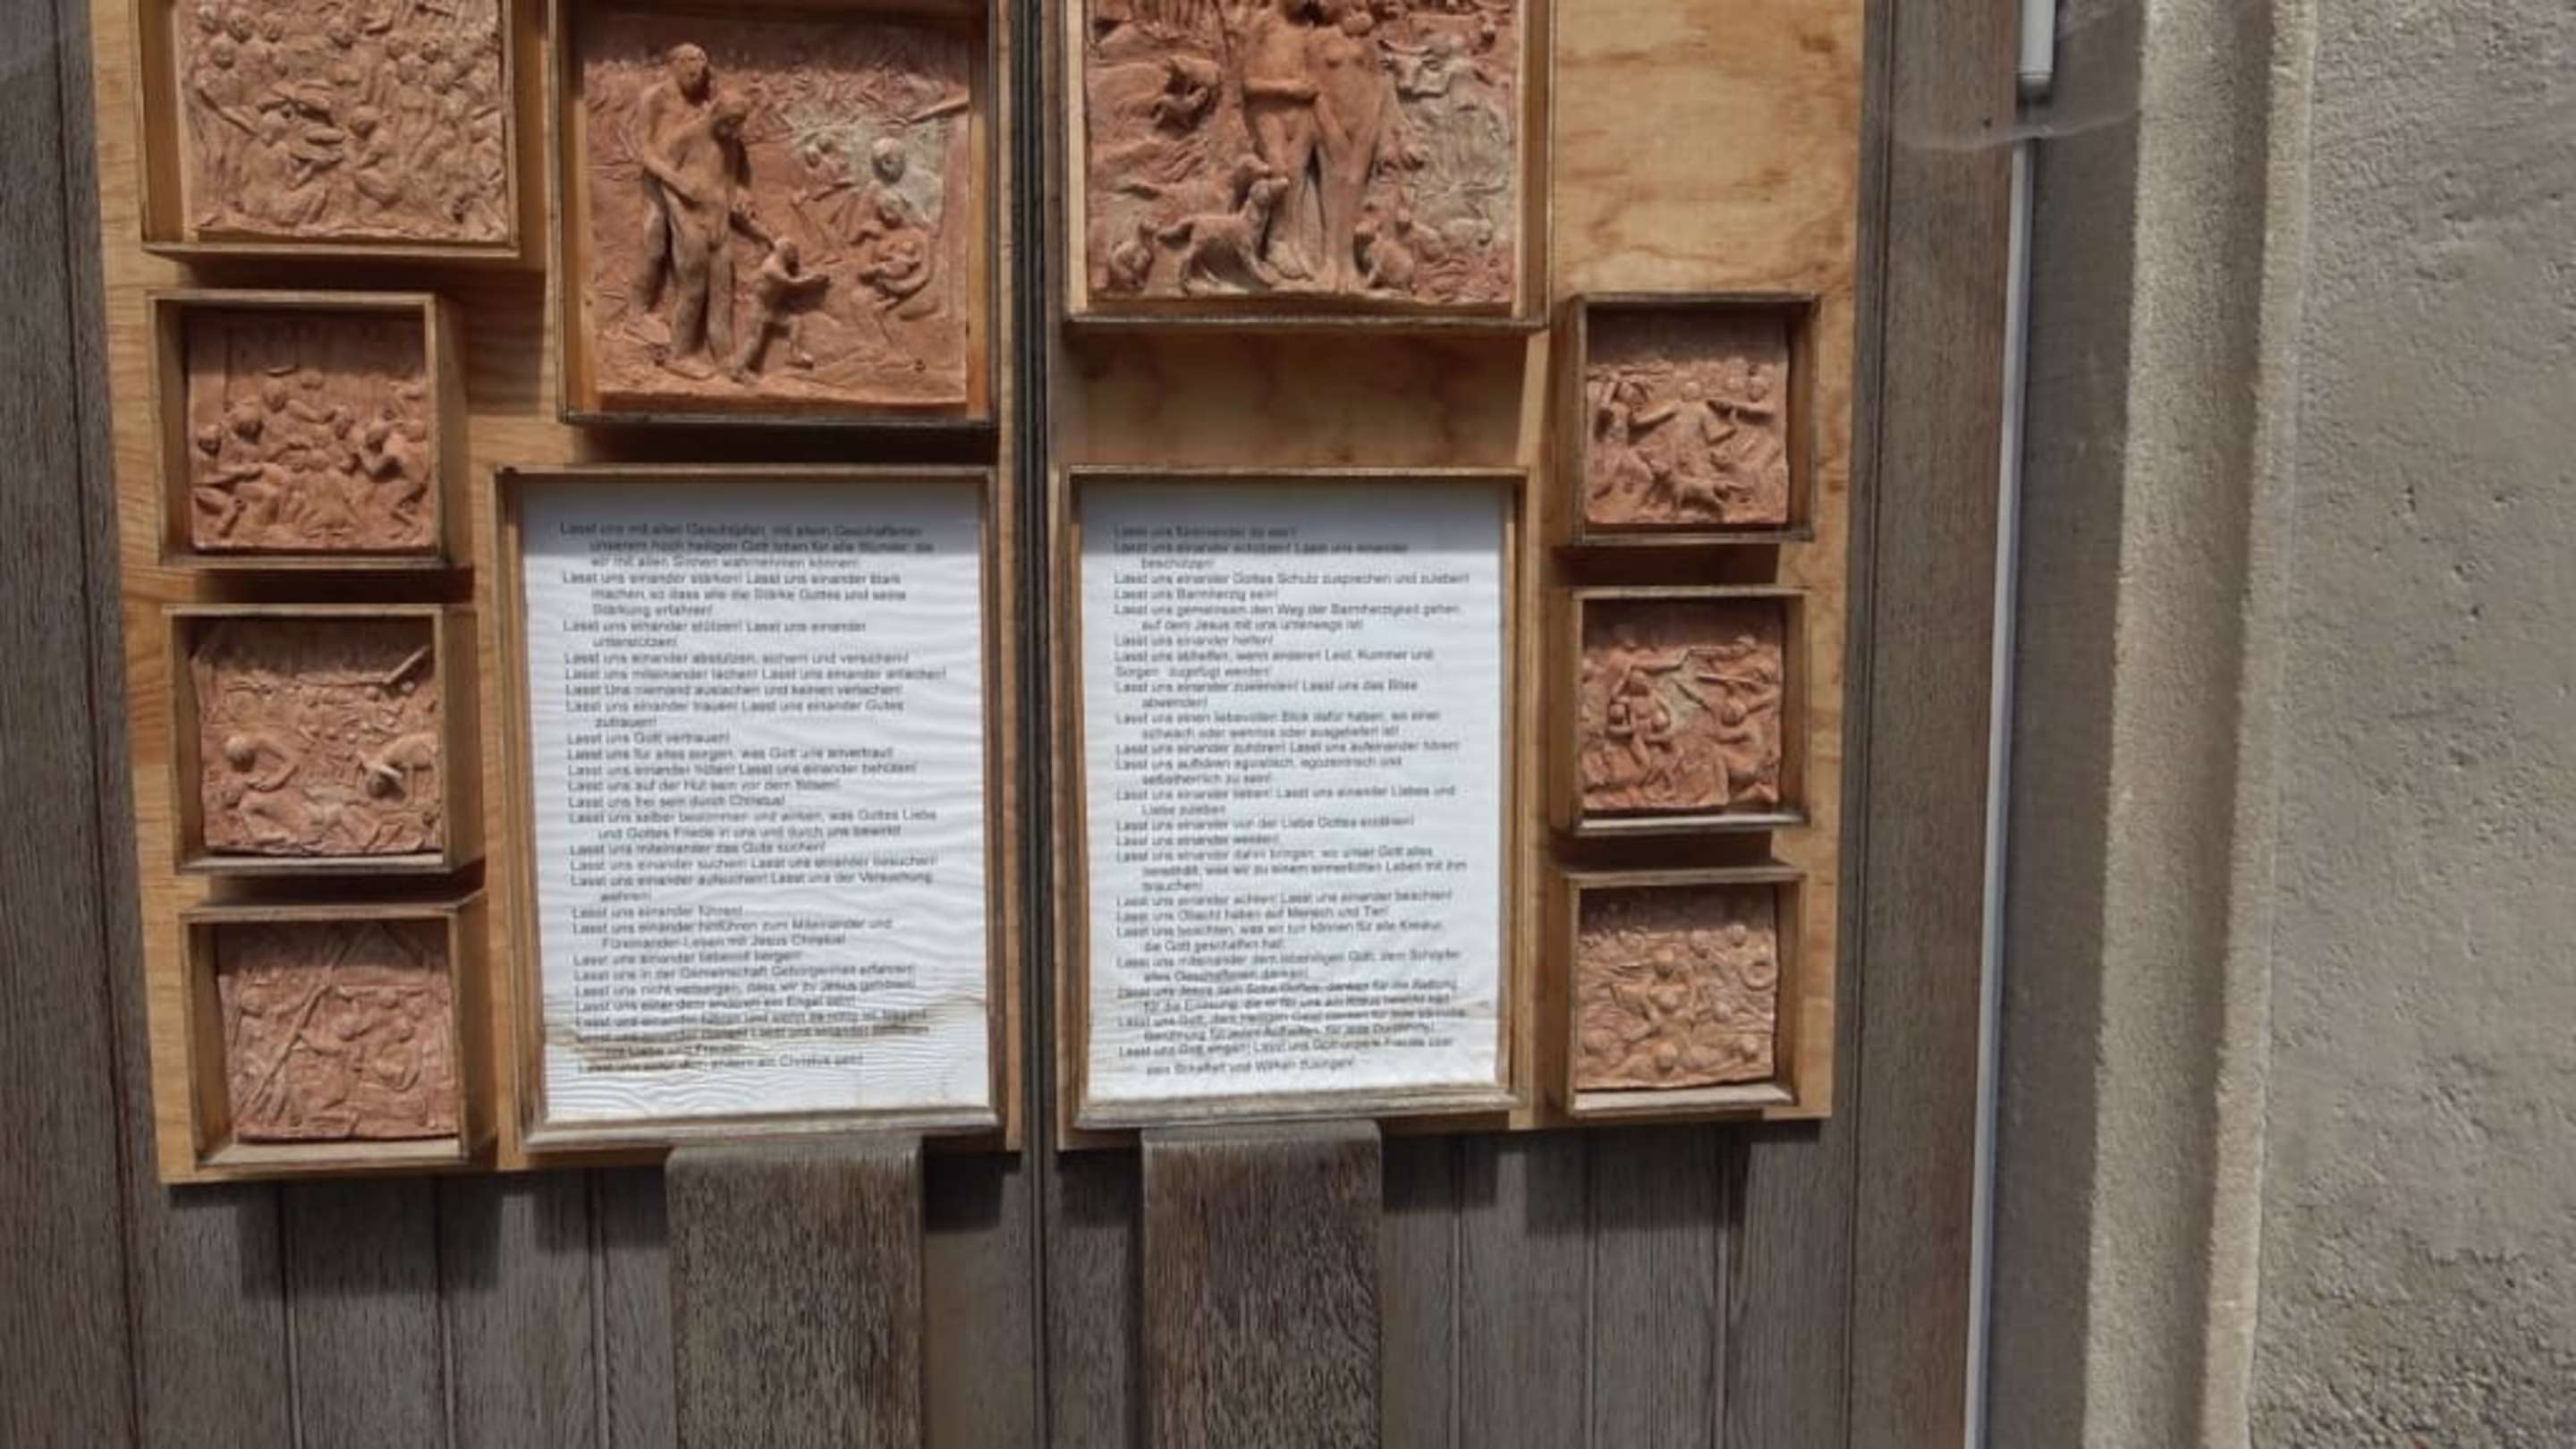 Lasst uns mit allen Geschöpfen, mit allem Geschaffenen
unserem hoch heiligen Gott loben für alle Wunder, die
wir mit allen Sinnen wahrnehmen können!
Lasst uns einander stärken! Lasst uns einander stark
machen, so dass alle die Stärke Gottes und seine
Stärkung erfahren!
Lasst uns einander stützen! Lasst uns einander
unterstützen!
Lasst uns einander abstützen, sichern und versichern!
Lasst uns miteinander lachen! Lasst uns einander anlachen!
Lasst Uns niemand auslachen und keinen verlachen!
Lasst uns einander trauen! Lasst uns einander Gutes
zutrauen!
Lasst uns Gott vertrauen!
Lasst uns für alles sorgen, was Gott uns anvertraut!
Lasst uns einander hüten! Lasst uns einander behüten!
Lasst uns auf der Hut sein vor dem Bösen!
Lasst uns frei sein durch Christus!
Lasst uns selber bestimmen und wirken, was Gottes Liebe
und Gottes Friede in uns und durch uns bewirkt
Lasst uns miteinander das Gute suchen!
Lasst uns einander suchen! Lasst uns einander besuchen!
Lasst uns einander aufsuchen! Lasst uns der Versuchung
wehren!
Lasst uns einander führen!
Lasst uns einander hinführen zum Miteinander und
Füreinander-Leben mit Jesus Christus!
Lasst uns einander liebevoll bergen!
Lasst uns in der Gemeinschaft Geborgenheit erfahren!
Lasst uns nicht verbergen, dass wir zu Jesus gehören!
Lasst uns einer dem anderen ein Engel sein!
Lasst uns einander führen und wenn es nötig ist
Lasst uns einander Lasst uns einander
mit Liebe und Freude!
Lasst uns einer dem andern ein Christus sein!
Lasst uns füreinander da sein!
Lasst uns einander schützen! Lasst uns einander
beschützen!
Lasst uns einander Gottes Schutz zusprechen und zuleben!
Lasst uns Barmherzig sein!
Lasst uns gemeinsam den Weg der Barmherzigkeit gehen,
auf dem Jesus mit uns unterwegs ist!
Lasst uns einander helfen!
Lasst uns abhelfen, wenn anderen Leid, Kummer und
Sorgen zugefügt werden!
Lasst uns einander zuwenden! Lasst uns das Böse
abwenden!
Lasst uns einen liebevollen Blick dafür haben, wo einer
schwach oder wehrlos oder ausgeliefert ist!
Lasst uns einander zuhören! Lasst uns aufeinander hören!
Lasst uns aufhören egoistisch, egozentrisch und
selbstherrlich zu sein!
Lasst uns einander lieben! Lasst uns einander Liebes und
Liebe zuleben
Lasst uns einander von der Liebe Gottes erzählen!
Lasst uns einander weiden!
Lasst uns einander dahin bringen, wo unser Gott alles
bereithält, was wir zu einem sinnerfüllten Leben mit ihm
brauchen!
Lasst uns einander achten! Lasst uns einander beachten!
Lasst uns Obacht haben auf Mensch und Tier!
Lasst uns beachten, was wir tun können für alle Kreatur,
die Gott geschaffen hat!
Lasst uns miteinander dem lebendigen Gott, dem Schöpfer
alles Geschaffenen danken!
Lasst uns Jesus dem Sohn Gottes, danken für die Rettung,
für die Erlösung, die er für uns am Kreuz bewirkt hat!
Lasst uns Gott, dem Heiligen Geist danken für jede
Berührung, für jeden Aufhelfen, für jede
Lasst uns Gott singen! Lasst uns Gott unsere Freude über
sein Schaffen und Wirken zusingen!